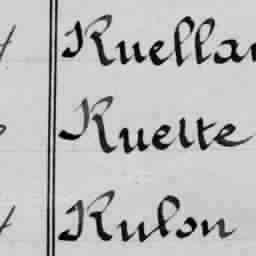 Ruellan
Ruette
Rulon